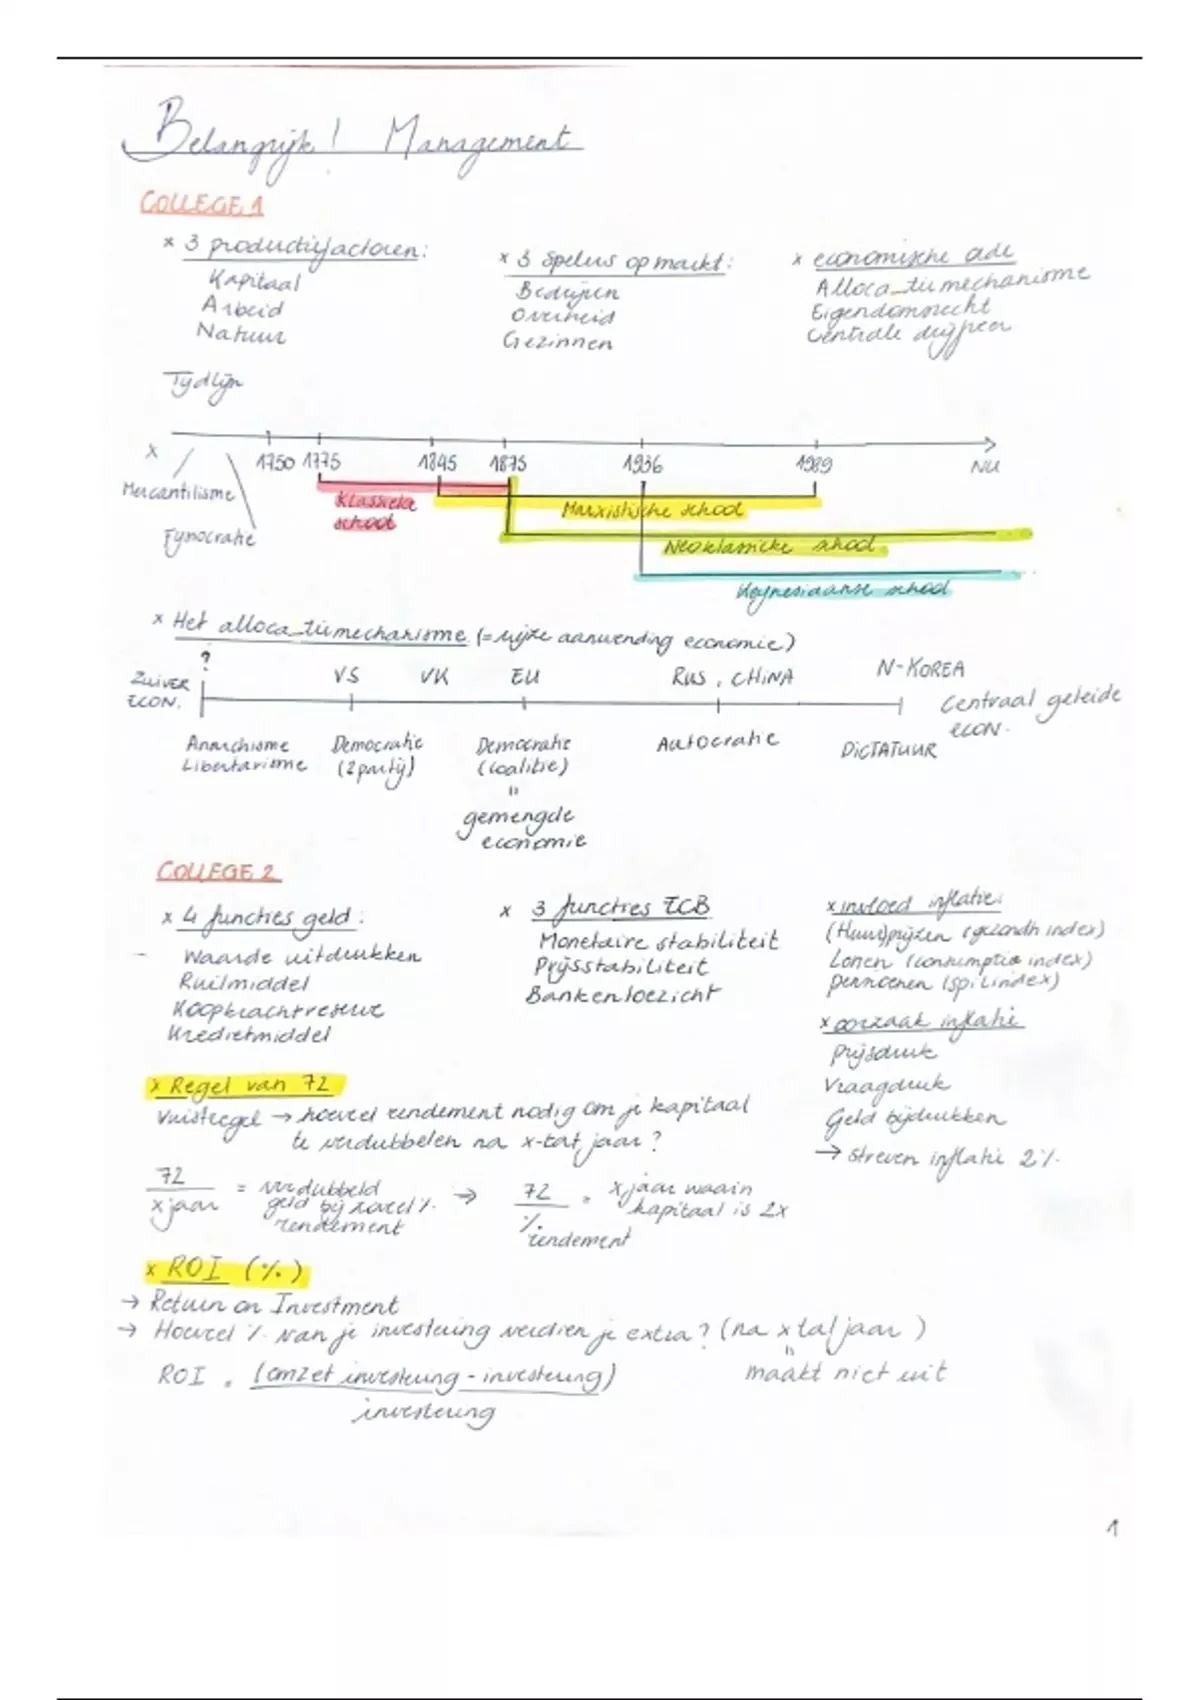 Belangrijk! Management
COLLEGE 1
x 3 productiefactoren:
Kapitaal
Arbeid
Natuur
x 3 spelers op markt:
Bedrijven
Overheid
Gezinnen
x economische orde
Alloca_tiemechanisme
Eigendomsrecht
Centrale drijfveer
Tijdlijn
x
1750 1775 1845 1875 1936 1989 NU
Mercantilisme
Fysiocratie
Klassieke
school
Marxistische school
Neoklassieke school
Keynesiaanse school
x Het alloca_tiemechanisme (= wijze aanwending economie)
?
Zuiver
ECON.
VS VK EU RUS, CHINA N-KOREA
Centraal geleide
econ.
Anarchisme
Libertarisme
Democratie
(2partij)
Democratie
(coalitie)
"
gemengde
economie
Autocratie
DICTATUUR
COLLEGE 2
x 4 functies geld:
- Waarde uitdrukken
Ruilmiddel
Koopkrachtreserve
Kredietmiddel
x 3 functies ECB
Monetaire stabiliteit
Prijsstabiliteit
Bankentoezicht
x invloed inflatie:
(Huur)prijzen (gezondh index)
Lonen (consumptie index)
pensioenen (spilindex)
x oorzaak inflatie
prijsdruk
Vraagdruk
Geld bijdrukken
→ streven inflatie 2%
x Regel van 72
Vuistregel → hoeveel rendement nodig om je kapitaal
te verdubbelen na x-tal jaar?
72
x jaar
= verdubbeld
geld bij hoeveel %
rendement
→
72
%
rendement
= x jaar waarin
kapitaal is 2x
x ROI (%)
→ Return on Investment
→ Hoeveel % van je investering verdien je extra? (na x tal jaar)
"
maakt niet uit
ROI = (omzet investering - investering)
investering
1